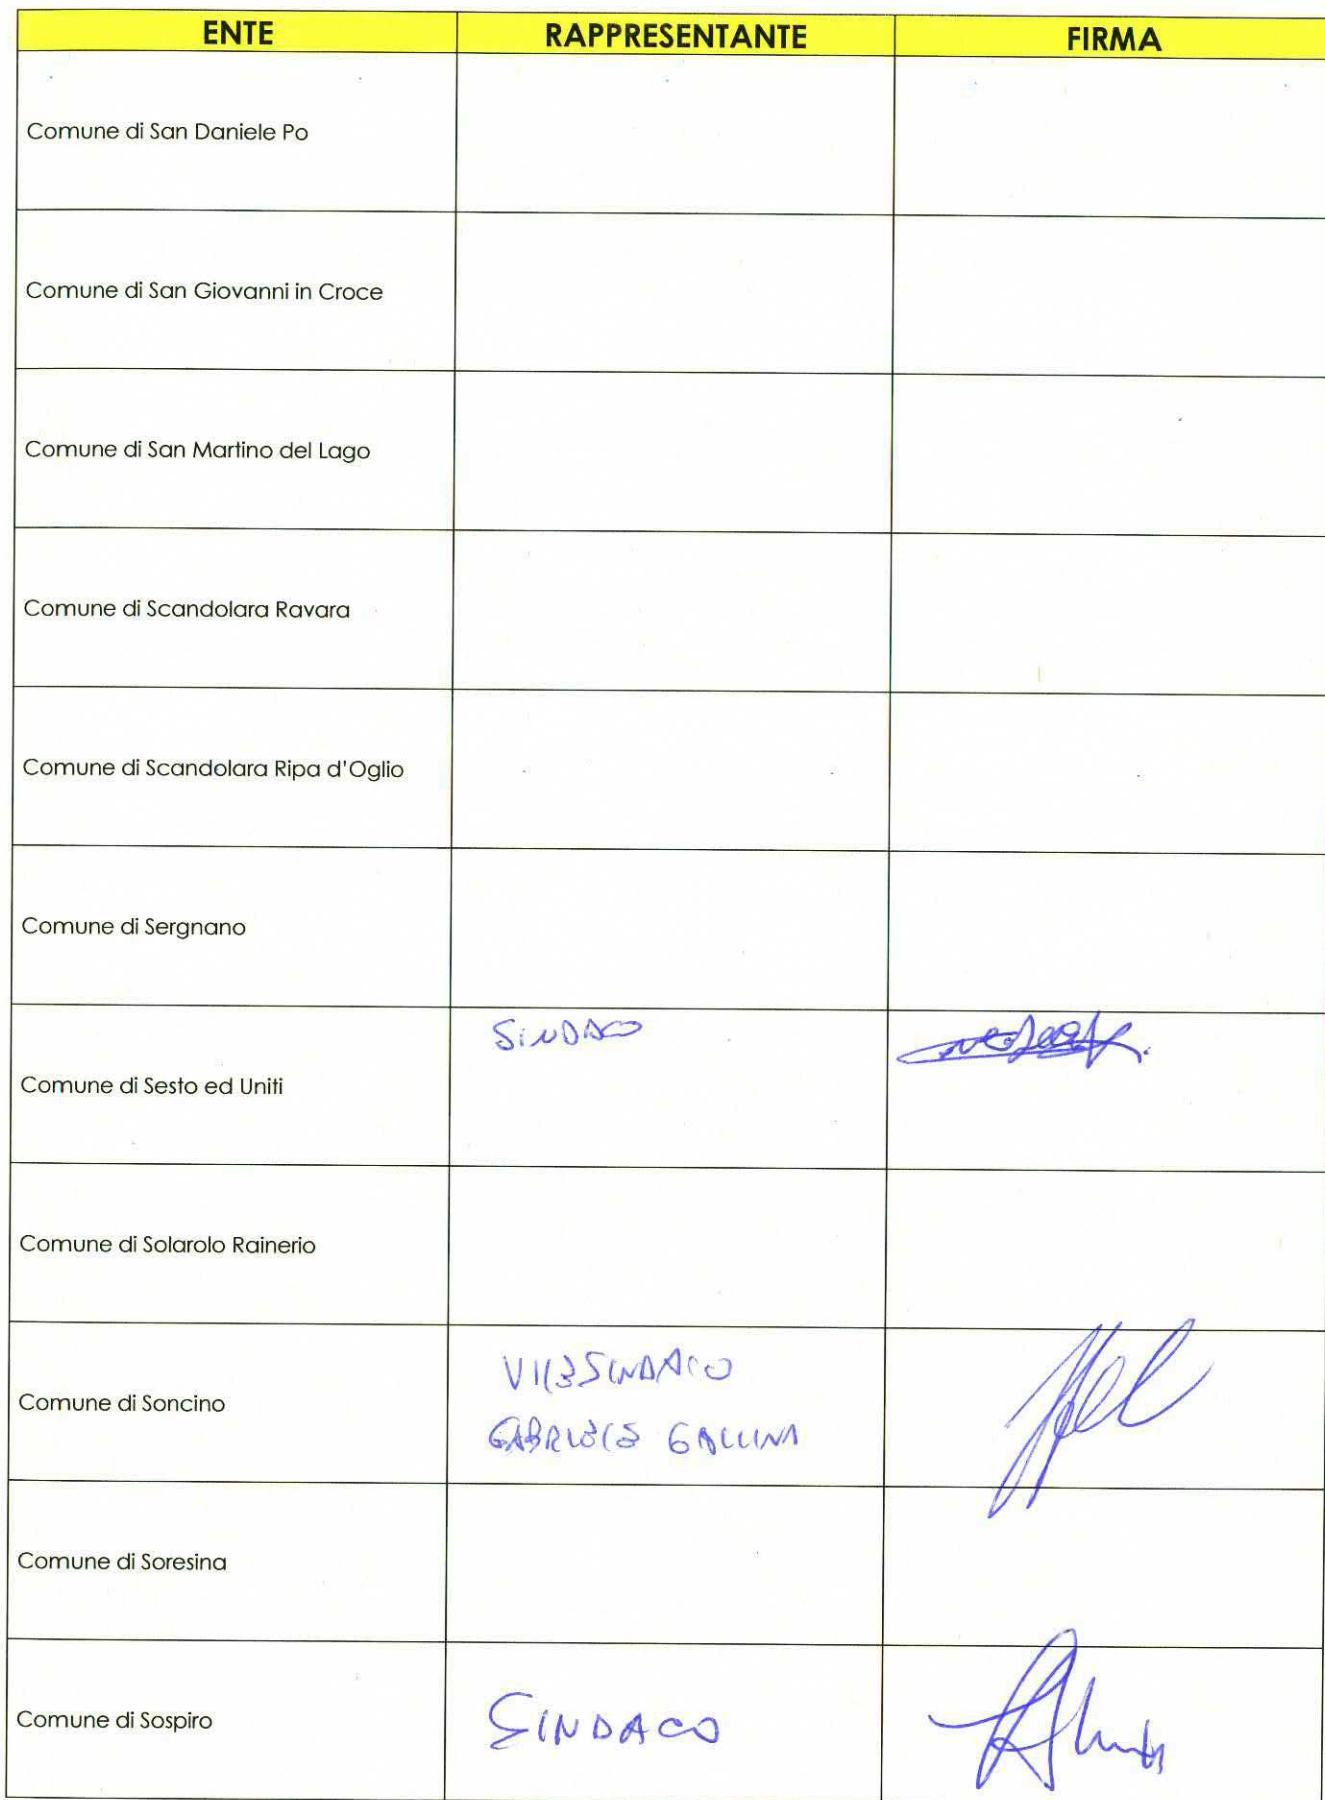 ENTE RAPPRESENTANTE FIRMA
Comune di San Daniele Po
Comune di San Giovanni in Croce
Comune di San Martino del Lago
Comune di Scandolara Ravara
Comune di Scandolara Ripa d'Oglio
Comune di Sergnano
SINDACO
Comune di Sesto ed Uniti
Comune di Solarolo Rainerio
VICESINDACO
Comune di Soncino
GABRIELE GALLINA
Comune di Soresina
Comune di Sospiro SINDACO